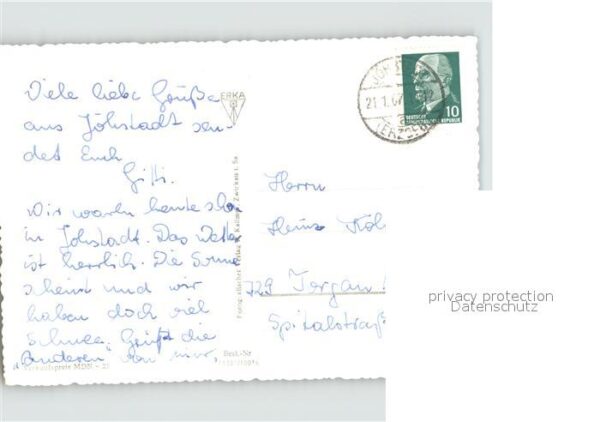 Viele liebe Grüße
aus Jöhstadt sen-
det Euch
Gitti.
Wir waren heute scho
in Jöhstadt. Das Wetter
ist herrlich. Die Sonne
scheint und wir
haben doch viel
Schnee. Grüßt die
Anderen von mir,
ERKA
21.1.67
(ERZGEB
10
DEUTSCHE
DEMOKRATISCHE REPUBLIK
Herrn
Heinz Köh
729 Torgau
Spitalstraß
privacy protection
Datenschutz
Best.-Nr